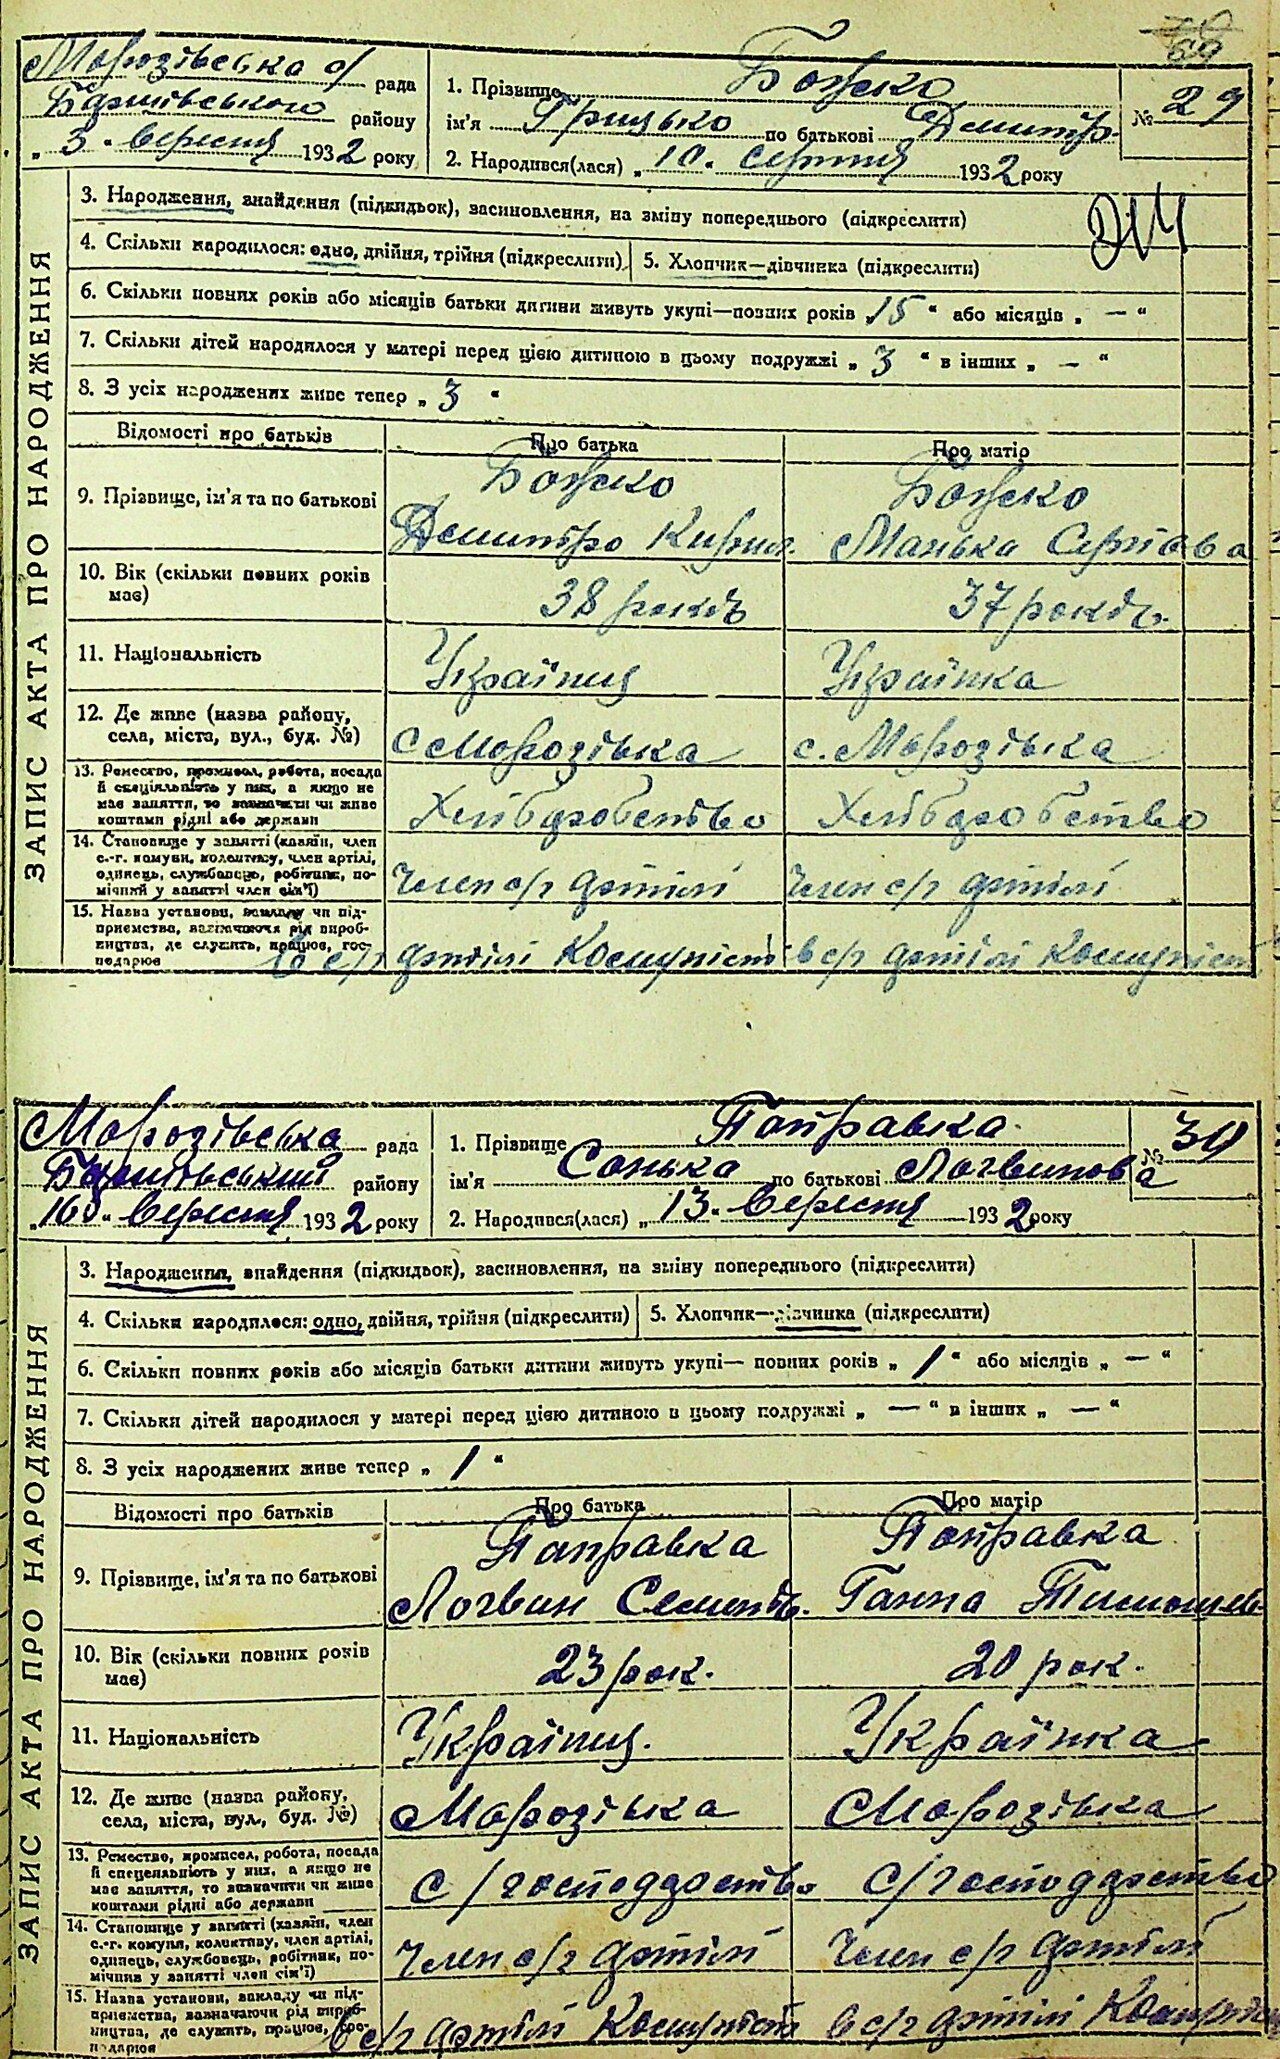 69
Морозівська с/ рада
Баришівського району
„ 3 " вересня 1932 року
1. Прізвище Божко
ім'я Грицько по батькові Демитр.
2. Народився(лася) „ 10 " серпня 1932 року
№ 29
ЗАПИС АКТА ПРО НАРОДЖЕННЯ
3. Народження, знайдення (підкидьок), засиновлення, на зміну попереднього (підкреслити)
4. Скільки народилося: одно, двійня, трійня (підкреслити)
5. Хлопчик—дівчинка (підкреслити)
6. Скільки повних років або місяців батьки дитини живуть укупі—повних років „ 15 " або місяців „ — "
7. Скільки дітей народилося у матері перед цією дитиною в цьому подружжі „ 3 " в інших „ — "
8. З усіх народжених живе тепер „ 3 "
Відомості про батьків
Про батька
Про матір
9. Прізвище, ім'я та по батькові
Божко
Демитро Кирил.
Божко
Манька Сергіева
10. Вік (скільки повних років
має)
38 років
37 років.
11. Національність
Українц
Українка
12. Де живе (назва району,
села, міста, вул., буд. №)
с Морозівка
с. Морозівка
13. Ремество, промисел, робота, посада
й спеціяльність у них, а якщо не
має заняття, то зазначити чи живе
коштами рідні або держави
Хліборобство
Хліборобство
14. Становище у занятті (хазяїн, член
с.-г. комуни, колективу, член артілі,
одинець, службовець, робітник, по-
мічний у занятті член сім'ї)
Член с/г артілі
Член с/г артілі
15. Назва установи, закладу чи під-
приємства, зазначаючи рід вироб-
ництва, де служить, працює, гос-
подарює
в с/г артілі Комуніст
в с/г артілі Комуніст
Морозівська рада
Баришівський району
„ 16 " вересня 1932 року
1. Прізвище Поправка
ім'я Санька по батькові Логвинова
2. Народився(лася) „ 13 " вересня 1932 року
№ 30
ЗАПИС АКТА ПРО НАРОДЖЕННЯ
3. Народження, знайдення (підкидьок), засиновлення, на зміну попереднього (підкреслити)
4. Скільки народилося: одно, двійня, трійня (підкреслити)
5. Хлопчик—дівчинка (підкреслити)
6. Скільки повних років або місяців батьки дитини живуть укупі— повних років „ 1 " або місяців „ — "
7. Скільки дітей народилося у матері перед цією дитиною в цьому подружжі „ — " в інших „ — "
8. З усіх народжених живе тепер „ 1 "
Відомості про батьків
Про батька
Про матір
9. Прізвище, ім'я та по батькові
Поправка
Логвин Семенів.
Поправка
Ганна Тимошев
10. Вік (скільки повних років
має)
23 рок.
20 рок.
11. Національність
Українц.
Українка
12. Де живе (назва району,
села, міста, вул., буд. №)
Морозівка
Морозівка
13. Ремество, промисел, робота, посада
й спеціяльність у них, а якщо не
має заняття, то зазначити чи живе
коштами рідні або держави
с/господарство
с/господарство
14. Становище у занятті (хазяїн, член
с.-г. комуни, колективу, член артілі,
одинець, службовець, робітник, по-
мічник у занятті член сім'ї)
Член с/г артілі
Член с/г артілі
15. Назва установи, закладу чи під-
приємства, зазначаючи рід вироб-
ництва, де служить, працює, гос-
подарює
в с/г артілі Комуніст
в с/г артілі Комуніст